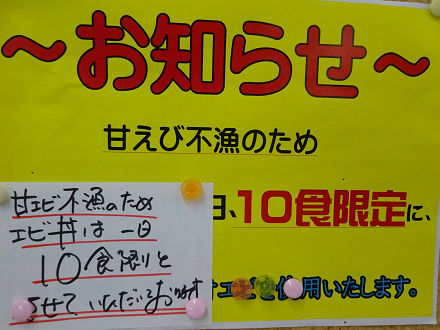 ～お知らせ～
甘えび不漁のため
日、10食限定に、
用いたします。
甘エビ不漁のため
エビ丼は一日
10食限りと
させていただいております